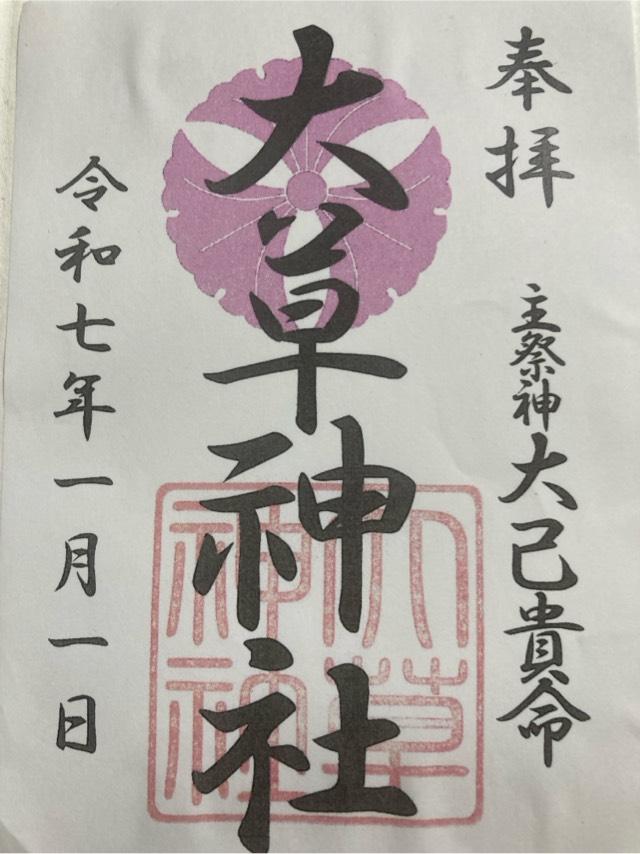 奉拝
主祭神 大己貴命
大草神社
令和七年一月一日
大草
神社